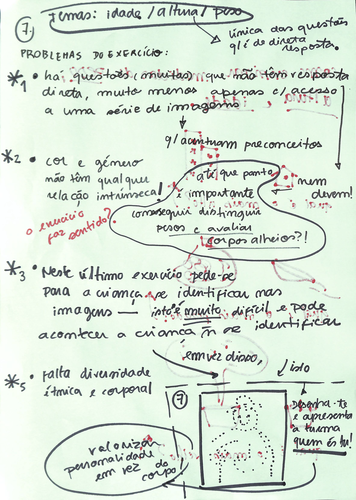 7. Temas: idade / altura / peso
única das questões
q/ é de direta
resposta.
PROBLEMAS DO EXERCÍCIO:
*1 • há questões (muitas) que não têm resposta
direta, muito menos apenas c/ acesso
a uma série de imagens
q/ acentuam preconceitos
*2 • cor e género
não têm qualquer
relação intrínseca!
nem
devem!
o exercício
faz sentido?
até que ponto
é importante
conseguir distinguir
pesos e avaliar
corpos alheios?!
*3 • Neste último exercício pede-se
para a criança se identificar nas
imagens — isto é muito difícil e pode
acontecer a criança ñ se identificar
em vez disso,
isto
*5 • Falta diversidade
étnica e corporal
7
Desenha-te
e apresenta
à turma
quem és tu!
valorizar
personalidade
em vez do
corpo